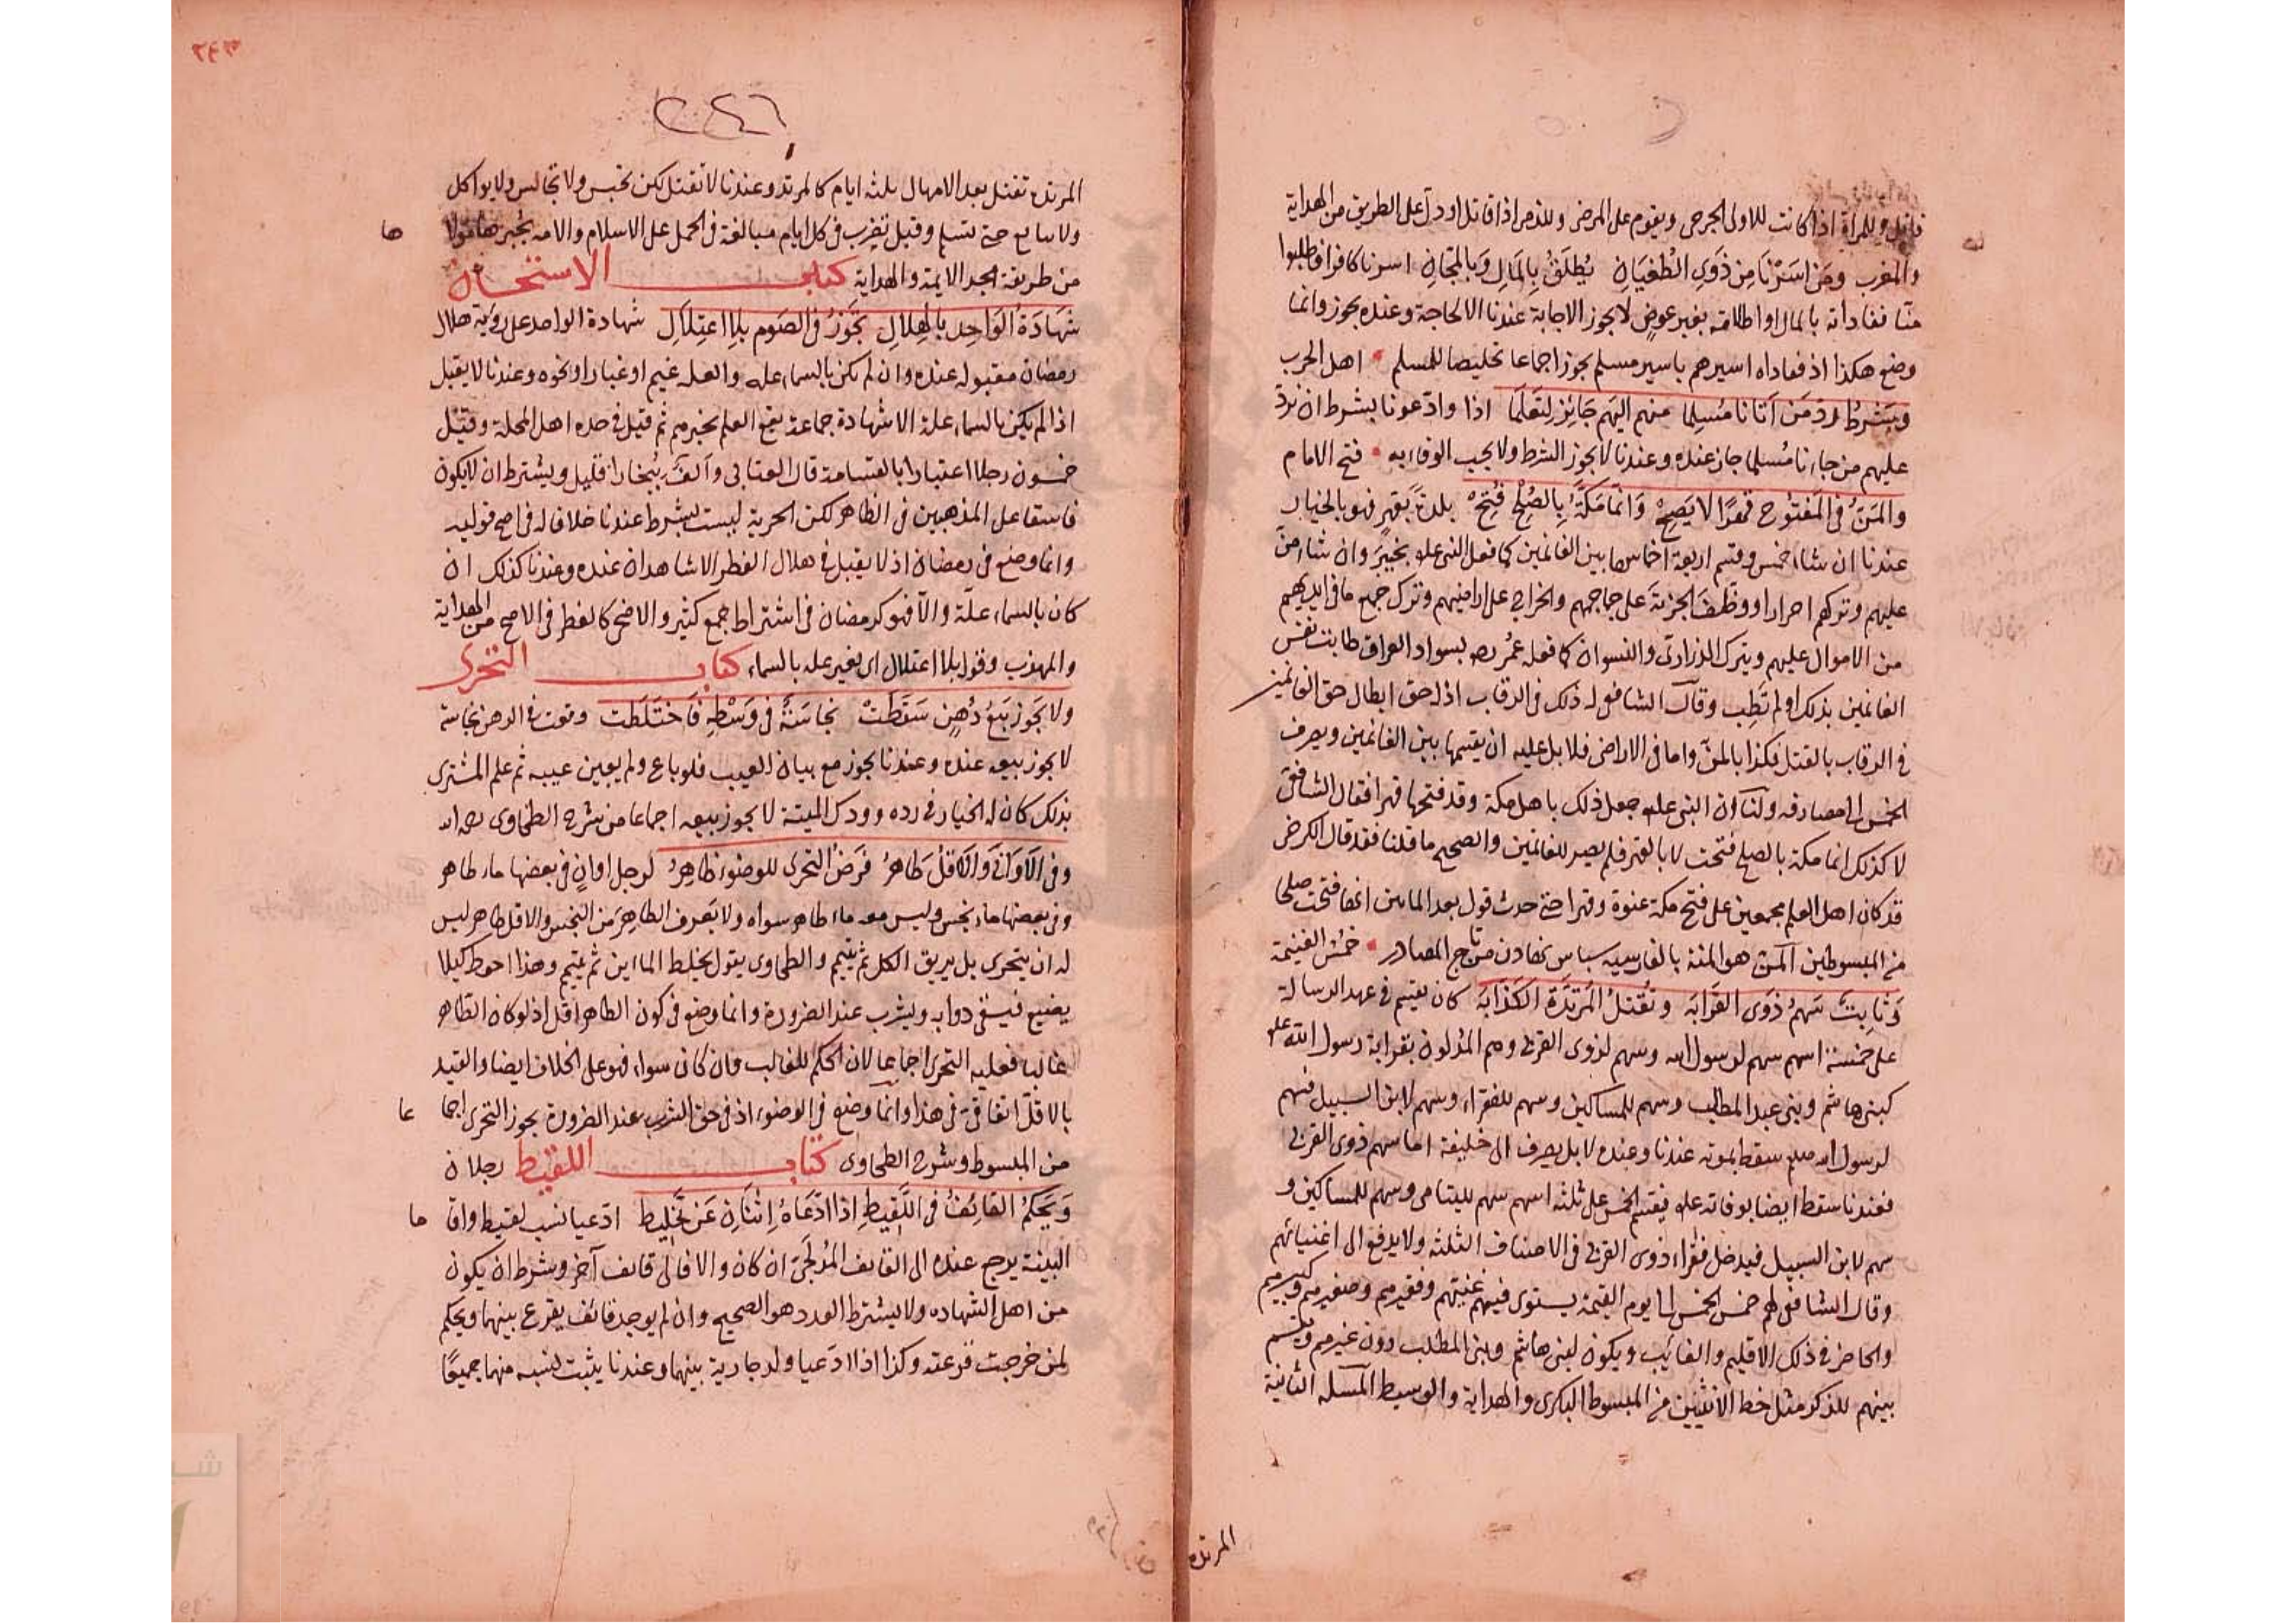 قاتل وللمرأة اذا كانت للاولى الجرحى ويقوم على المرضى وللذمى اذا قاتل او دل على الطريق من الهداية
والمغرب ومن اسرنا من ذوى الطغيان يطلق بالمال وبالمجان اسرنا كافرا فطلبوا
منا مفاداته بالمال او اطلاقه بغير عوض لا يجوز الاجابة عندنا الا لحاجة وعنده يجوز وانما
وضع هكذا اذ مفاداه اسيرهم باسير مسلم يجوز اجماعا تخليصا للمسلم اهل الحرب
وبشرط رد من اتانا مسلما منهم اليهم جايز لتعلما اذا وادعونا بشرط ان نرد
عليهم من جاءنا مسلما جاز عنده وعندنا لا يجوز الشرط ولا يجب الوفاء به فتح الامام
والمن فى المفتوح قهرا لا يصح وانما مكة بالصلح فتح بلدة بقهر فهو بالخيار
عندنا ان شاء خمس وقسم اربعة اخماسها بين الغانمين كما فعل النبى علم بخيبر وان شاء من
عليهم وتركهم احرارا ووظف الجزية على جماجمهم والخراج على اراضيهم وترك جميع ما فى ايديهم
من الاموال عليهم ويترك الذرارى والنسوان كما فعله عمر رضه بسواد العراق طابت نفس
الغانمين بذلك او لم تطب وقال الشافعى له ذلك فى الرقاب اذ له حق ابطال حق الغانمين
فى الرقاب بالقتل فكذا بالمن واما فى الاراضى فلا بل عليه ان يقسمها بين الغانمين ويصرف
الخمس الى مصارفه ولنا ان النبى علم جعل ذلك باهل مكة وقد فتحها قهرا فقال الشافعى
لا كذلك انما مكة بالصلح فتحت لا بالقهر فلم يصر للغانمين والصحيح ما قلنا فقد قال الكرخى
قد كان اهل العلم مجمعين على فتح مكة عنوة وقهرا حتى حدث قول بعد المايتين انها فتحت صلحا
من المبسوطين المن هو المنة بالفارسيه سپاس نهادن من تاج المصادر خمس الغنيمة
وثابت سهم ذوى القرابه وتقتل المرتدة الكذابه كان يقسم فى عهد الرسالة
على خمسة اسهم سهم لرسول الله وسهم لذوى القربى وهم المدلون بقرابة رسول الله علم
كبنى هاشم وبنى عبد المطلب وسهم للمساكين وسهم للفقراء وسهم لابن السبيل فسهم
لرسول الله صلعم سقط بموته عندنا وعنده لا بل يصرف الى خليفة اما سهم ذوى القربى
فعندنا سقط ايضا بوفاته علم فيقسم الخمس على ثلثه اسهم سهم لليتامى وسهم للمساكين و
سهم لابن السبيل فيدخل فقراء ذوى القربى فى الاصناف الثلثه ولا يدفع الى اغنيائهم
وقال الشافعى لهم خمس الخمس الى يوم القيمة يستوى فيهم غنيهم وفقيرهم وصغيرهم وكبيرهم
والحاضر فى ذلك الاقليم والغائب ويكون لبنى هاشم وبنى المطلب دون غيرهم ويقسم
بينهم للذكر مثل حظ الانثيين من المبسوط البكرى والهداية والوسيط المسئله الثانية
المرتده
٢٤٣
٢٤٦
المرتده تقتل بعد الامهال بثلثه ايام كالمرتد وعندنا لا تقتل لكن تحبس ولا تجالس ولا يواكل
ولا يبايع حتى تسلم وقيل تضرب فى كل ايام مبالغة فى الحمل على الاسلام والامه يجبرها مولا
ها
من طريقة مجد الايمة والهداية كتاب الاستحسان
شهادة الواحد بالهلال تجوز فى الصوم بلا اعتلال شهادة الواحد على رؤية هلال
رمضان مقبوله عنده وان لم يكن بالسماء عله والعله غيم او غبار او نحوه وعندنا لا يقبل
اذا لم يكن بالسماء علة الا شهادة جماعة يقع العلم بخبرهم ثم قيل فى حده اهل المحلة وقيل
خمسون رجلا اعتبارا بالقسامة قال العتابى والف ببخارا قليل ويشترط ان لا يكون
فاسقا على المذهبين فى الظاهر لكن الحرية ليست بشرط عندنا خلافا له فى اصح قوليه
وانما وضع فى رمضان اذ لا يقبل فى هلال الفطر الا شاهدان عنده وعندنا كذلك ان
كان بالسماء علة والا فهو كرمضان فى اشتراط جمع كثير والاضحى كالفطر فى الاصح من الهداية
والمهذب وقوله بلا اعتلال اى بغير عله بالسماء كتاب التحرى
ولا يجوز بيع دهن سقطت نجاسة فى وسطه فاختلطت وقوت فى الدهن نجاسة
لا يجوز بيعه عنده وعندنا يجوز مع بيان العيب فلو باع ولم يبين عيبه ثم علم المشترى
بذلك كان له الخيار فى رده وودك الميتة لا يجوز بيعه اجماعا من شرح الطحاوى رحه الله
وفى الاوانى والاقل طاهر فرض التحرى للوضوء ظاهر لرجل اوان فى بعضها ماء طاهر
وفى بعضها ماء نجس وليس معه ماء طاهر سواه ولا يعرف الطاهر من النجس والاقل طاهر ليس
له ان يتحرى بل يريق الكل ثم يتيمم والطحاوى يقول يخلط المائين ثم يتيمم وهذا احوط كيلا
يضيع فيسقى دوابه ويشرب عند الضرورة وانما وضع فى كون الطاهر اقل اذ لو كان الطاهر
غالبا فعليه التحرى اجماعا لان الحكم للغالب فان كان سواء فهو على الخلاف ايضا والقيد
بالاقل اتفاقى فى هذا وانما وضع فى الوضوء اذ فى حق الشرب عند الضرورة يجوز التحرى اجما
عا
من المبسوط وشرح الطحاوى كتاب اللقيط رجلان
ويحكم القائف فى اللقيط اذا ادعاه اثنان عن تخليط ادعيا نسب لقيط واقا
ما
البينة يرجع عنده الى القائف المدلجى ان كان والا فالى قائف آخر وشرط ان يكون
من اهل الشهاده ولا يشترط العدد هو الصحيح وان لم يوجد قائف يقرع بينهما ويحكم
لمن خرجت قرعته وكذا اذا ادعيا ولد جارية بينهما وعندنا يثبت نسبه منهما جميعا